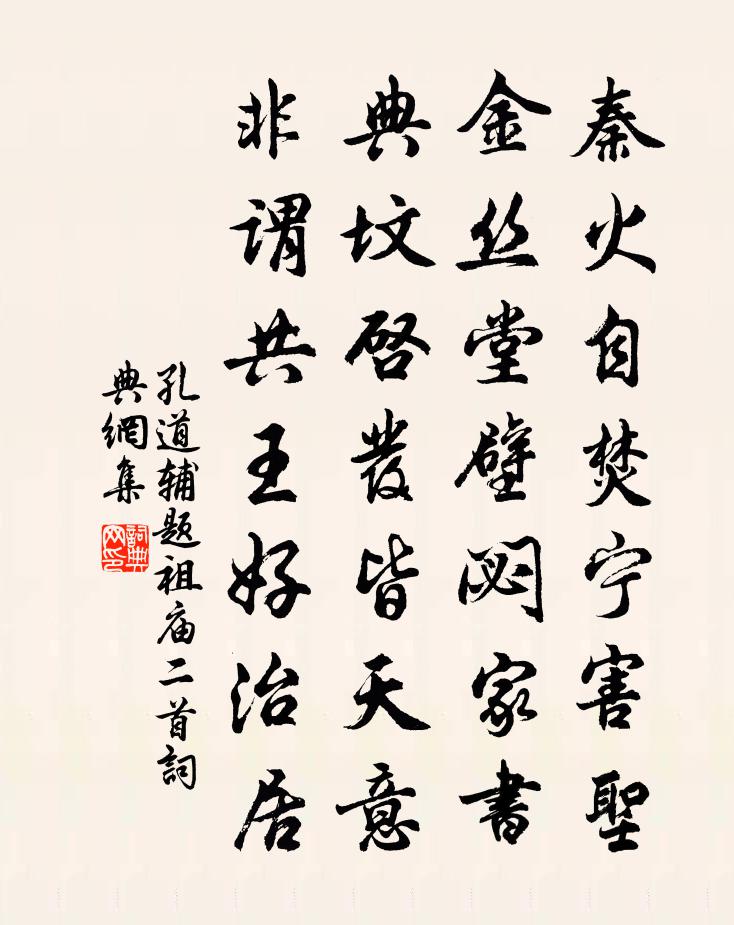 秦火自焚宁害聖
金丝堂壁閟家書
典坟启發皆天意
非谓共王好治居
孔道辅题祖庙二首詞
典網集
詞典網印